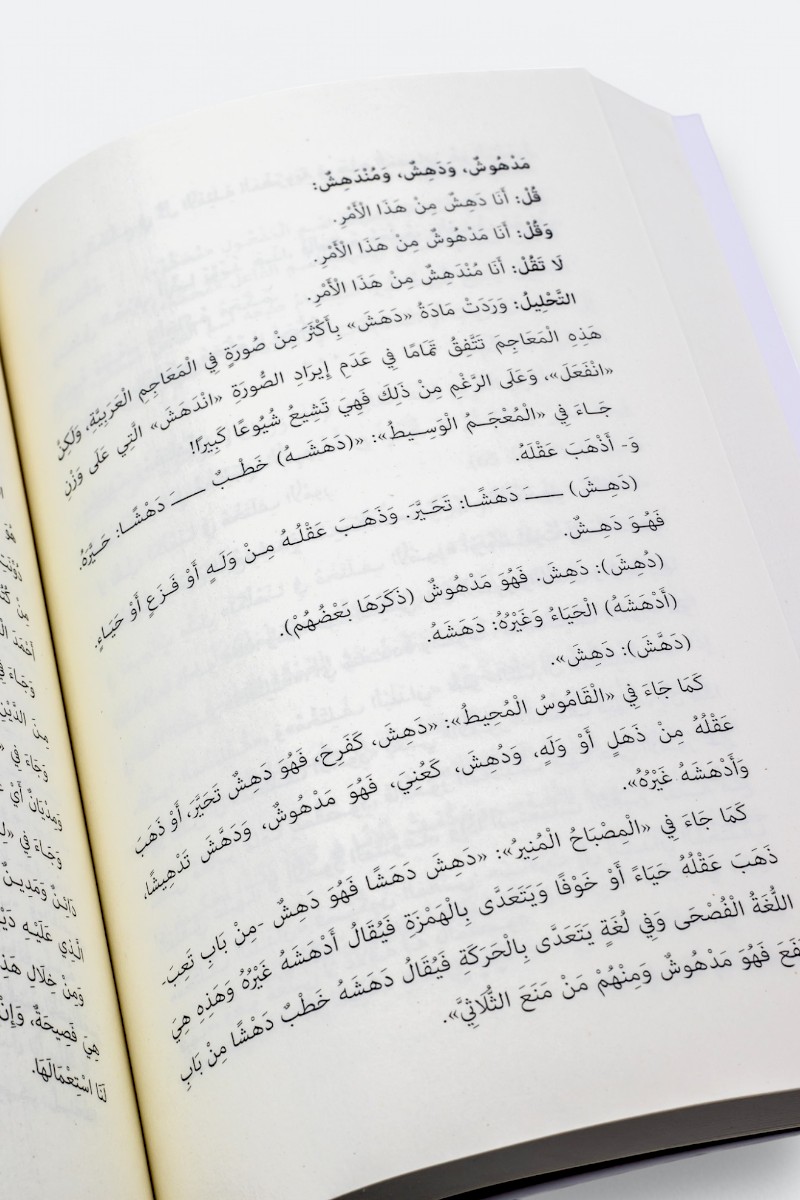 مَدْهُوشٌ، وَدَهِشٌ، وَمُنْدَهِشٌ:
قُلْ: أَنَا دَهِشٌ مِنْ هَذَا الْأَمْرِ.
وَقُلْ: أَنَا مَدْهُوشٌ مِنْ هَذَا الْأَمْرِ.
لَا تَقُلْ: أَنَا مُنْدَهِشٌ مِنْ هَذَا الْأَمْرِ.
التَّحْلِيلُ: وَرَدَتْ مَادَةُ «دَهَشَ» بِأَكْثَرَ مِنْ صُورَةٍ فِي الْمَعَاجِمِ الْعَرَبِيَّةِ، وَلَكِنْ
هَذِهِ الْمَعَاجِمَ تَتَّفِقُ تَمَامًا فِي عَدَمِ إِيرَادِ الصُّورَةِ «انْدَهَشَ» الَّتِي عَلَى وَزْنِ
«انْفَعَلَ»، وَعَلَى الرَّغْمِ مِنْ ذَلِكَ فَهِيَ تَشِيعُ شُيُوعًا كَبِيرًا!
جَاءَ فِي «الْمُعْجَمُ الْوَسِيطُ»: «(دَهَشَهُ) خَطْبٌ ـــَ دَهْشًا: حَيَّرَهُ.
وَ- أَذْهَبَ عَقْلَهُ.
(دَهِشَ) ـــَ دَهَشًا: تَحَيَّرَ. وَذَهَبَ عَقْلُهُ مِنْ وَلَهٍ أَوْ فَزَعٍ أَوْ حَيَاءٍ.
فَهُوَ دَهِشٌ.
(دُهِشَ): دَهِشَ. فَهُوَ مَدْهُوشٌ (ذَكَرَهَا بَعْضُهُمْ).
(أَدْهَشَهُ) الْحَيَاءُ وَغَيْرُهُ: دَهَشَهُ.
(دَهَّشَ): دَهِشَ».
كَمَا جَاءَ فِي «الْقَامُوسُ الْمُحِيطُ»: «دَهِشَ، كَفَرِحَ، فَهُوَ دَهِشٌ تَحَيَّرَ، أَوْ ذَهَبَ
عَقْلُهُ مِنْ ذَهَلٍ أَوْ وَلَهٍ، وَدُهِشَ، كَعُنِيَ، فَهُوَ مَدْهُوشٌ، وَدَهَّشَ تَدْهِيشًا،
وَأَدْهَشَهُ غَيْرُهُ».
كَمَا جَاءَ فِي «الْمِصْبَاحُ الْمُنِيرُ»: «دَهِشَ دَهَشًا فَهُوَ دَهِشٌ -مِنْ بَابِ تَعِبَ-
ذَهَبَ عَقْلُهُ حَيَاءً أَوْ خَوْفًا وَيَتَعَدَّى بِالْهَمْزَةِ فَيُقَالُ أَدْهَشَهُ غَيْرُهُ وَهَذِهِ هِيَ
اللُّغَةُ الْفُصْحَى وَفِي لُغَةٍ يَتَعَدَّى بِالْحَرَكَةِ فَيُقَالُ دَهَشَهُ خَطْبٌ دَهْشًا مِنْ بَابِ
فَهُوَ مَدْهُوشٌ وَمِنْهُمْ مَنْ مَنَعَ الثُّلَاثِيَّ».
وَجَاءَ
مِنَ الدَّيْنِ
وَجَاءَ فِي
وَمِدْيَانٌ أَيْ
وَجَاءَ فِي
دَائِنٌ وَمَدِينٌ
الَّذِي عَلَيْهِ
وَمِنْ خِلَالِ
هِيَ فَصِيحَةٌ،
لَنَا اسْتِعْمَالَهَا.